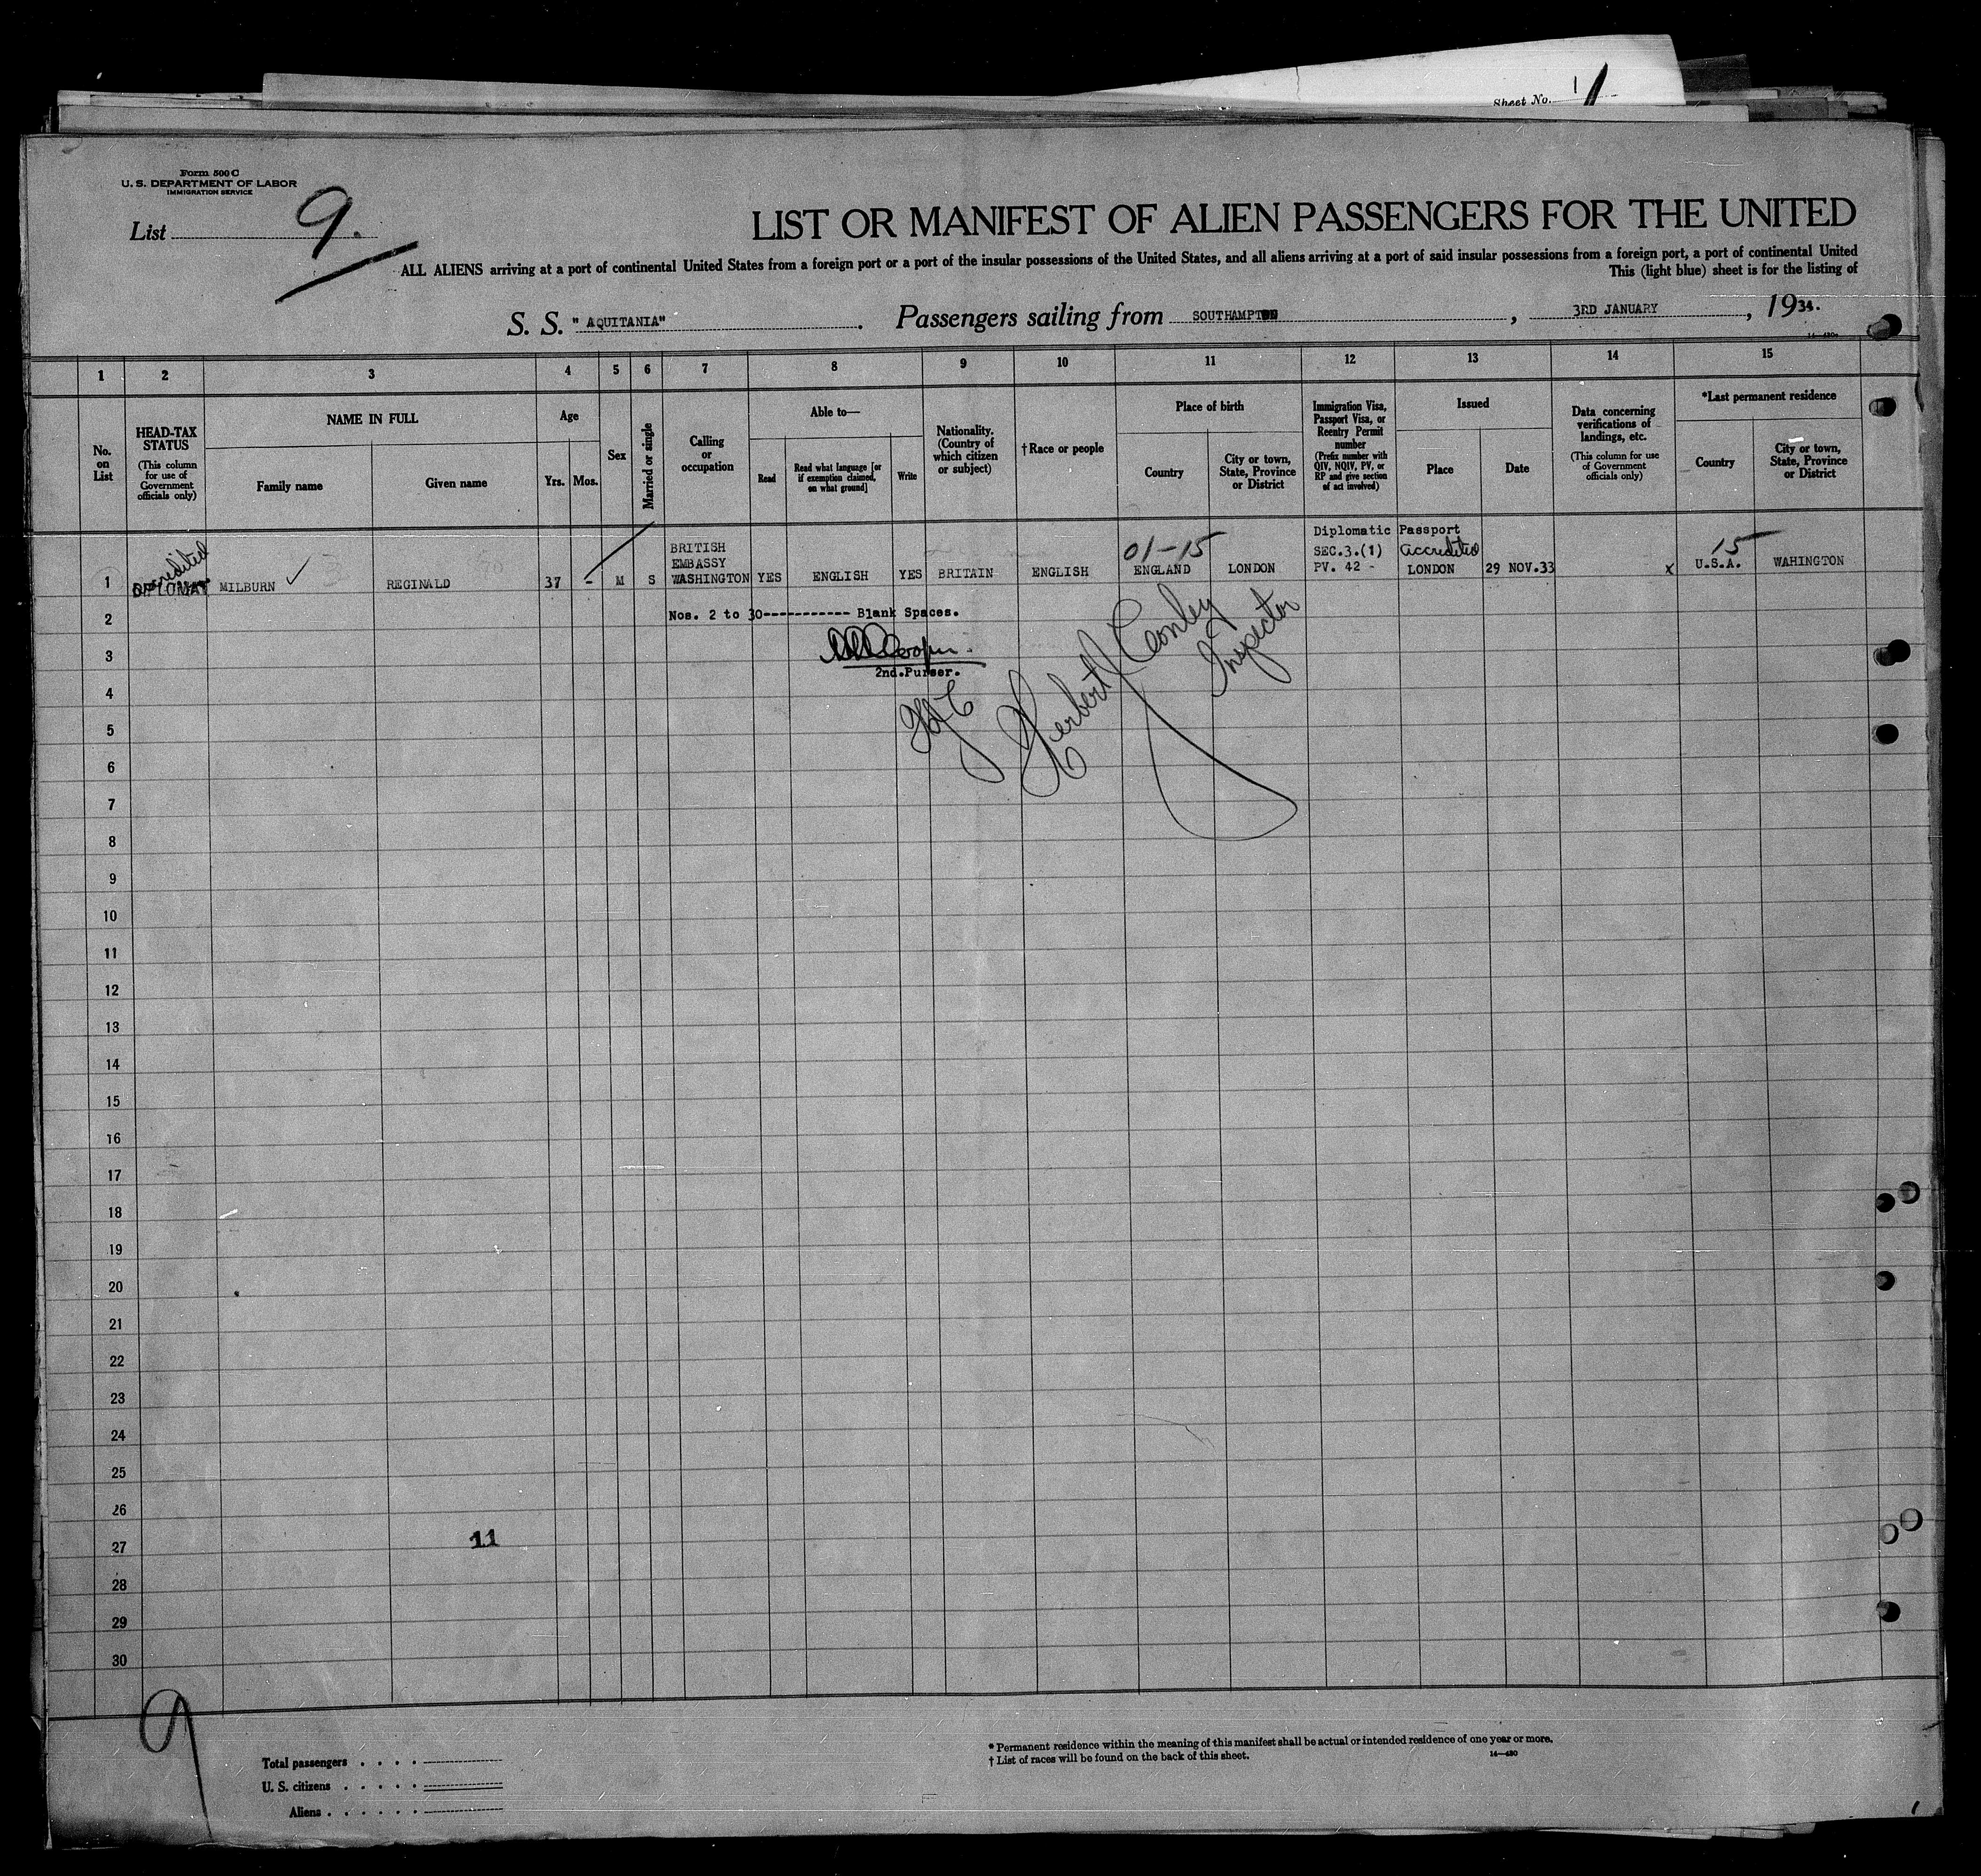 Sheet No. 1
Form 500 C
U. S. DEPARTMENT OF LABOR
IMMIGRATION SERVICE
List 9.
LIST OR MANIFEST OF ALIEN PASSENGERS FOR THE UNITED
ALL ALIENS arriving at a port of continental United States from a foreign port or a port of the insular possessions of the United States, and all aliens arriving at a port of said insular possessions from a foreign port, a port of continental United
This (light blue) sheet is for the listing of
S. S. " AQUITANIA" . Passengers sailing from SOUTHAMPTON , 3RD JANUARY , 1934.
14—430
1 2 3 4 5 6 7 8 9 10 11 12 13 14 15
No. on List
HEAD-TAX STATUS
(This column for use of Government officials only)
NAME IN FULL
Family name
Given name
Age
Yrs. Mos.
Sex
Married or single
Calling or occupation
Able to—
Read
Read what language [or if exemption claimed, on what ground]
Write
Nationality. (Country of which citizen or subject)
†Race or people
Place of birth
Country
City or town, State, Province or District
Immigration Visa, Passport Visa, or Reentry Permit number
(Prefix number with QIV, NQIV, PV, or RP and give section of act involved)
Issued
Place
Date
Data concerning verifications of landings, etc.
(This column for use of Government officials only)
*Last permanent residence
Country
City or town, State, Province or District
1 accredited DIPLOMAT MILBURN REGINALD 37 - M S BRITISH EMBASSY WASHINGTON YES ENGLISH YES BRITAIN ENGLISH 01-15 ENGLAND LONDON Diplomatic Passport SEC.3.(1) accredited PV. 42 - LONDON 29 NOV.33 x 15 U.S.A. WAHINGTON
2 Nos. 2 to 30----------- Blank Spaces.
3 Cooper
2nd.Purser.
Herbert J Conley
Inspector
4
5
6
7
8
9
10
11
12
13
14
15
16
17
18
19
20
21
22
23
24
25
26
11
27
28
29
30
9
Total passengers . . . .
U. S. citizens . . . . .
Aliens . . . . . .
* Permanent residence within the meaning of this manifest shall be actual or intended residence of one year or more.
† List of races will be found on the back of this sheet.
14—430
1